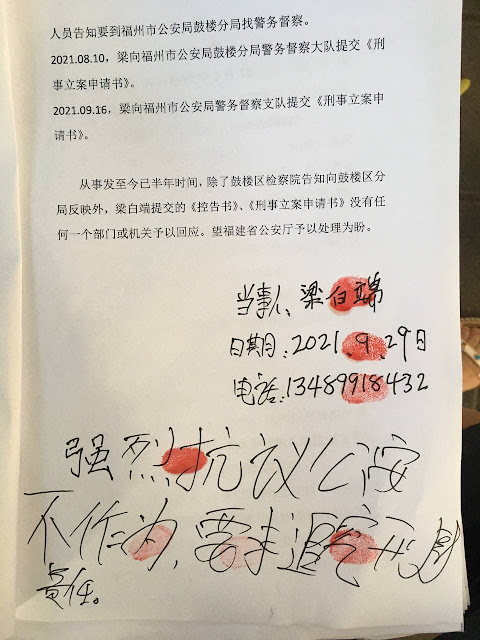 人员告知要到福州市公安局鼓楼分局找警务督察。
2021.08.10，梁向福州市公安局鼓楼分局警务督察大队提交《刑
事立案申请书》。
2021.09.16，梁向福州市公安局警务督察支队提交《刑事立案申
请书》。
从事发至今已半年时间，除了鼓楼区检察院告知向鼓楼区分
局反映外，梁白端提交的《控告书》、《刑事立案申请书》没有任
何一个部门或机关予以回应。望福建省公安厅予以处理为盼。
当事人：梁白端
日期：2021.9.29日
电话：13489918432
强烈抗议公安
不作为，要求追究刑事
责任。